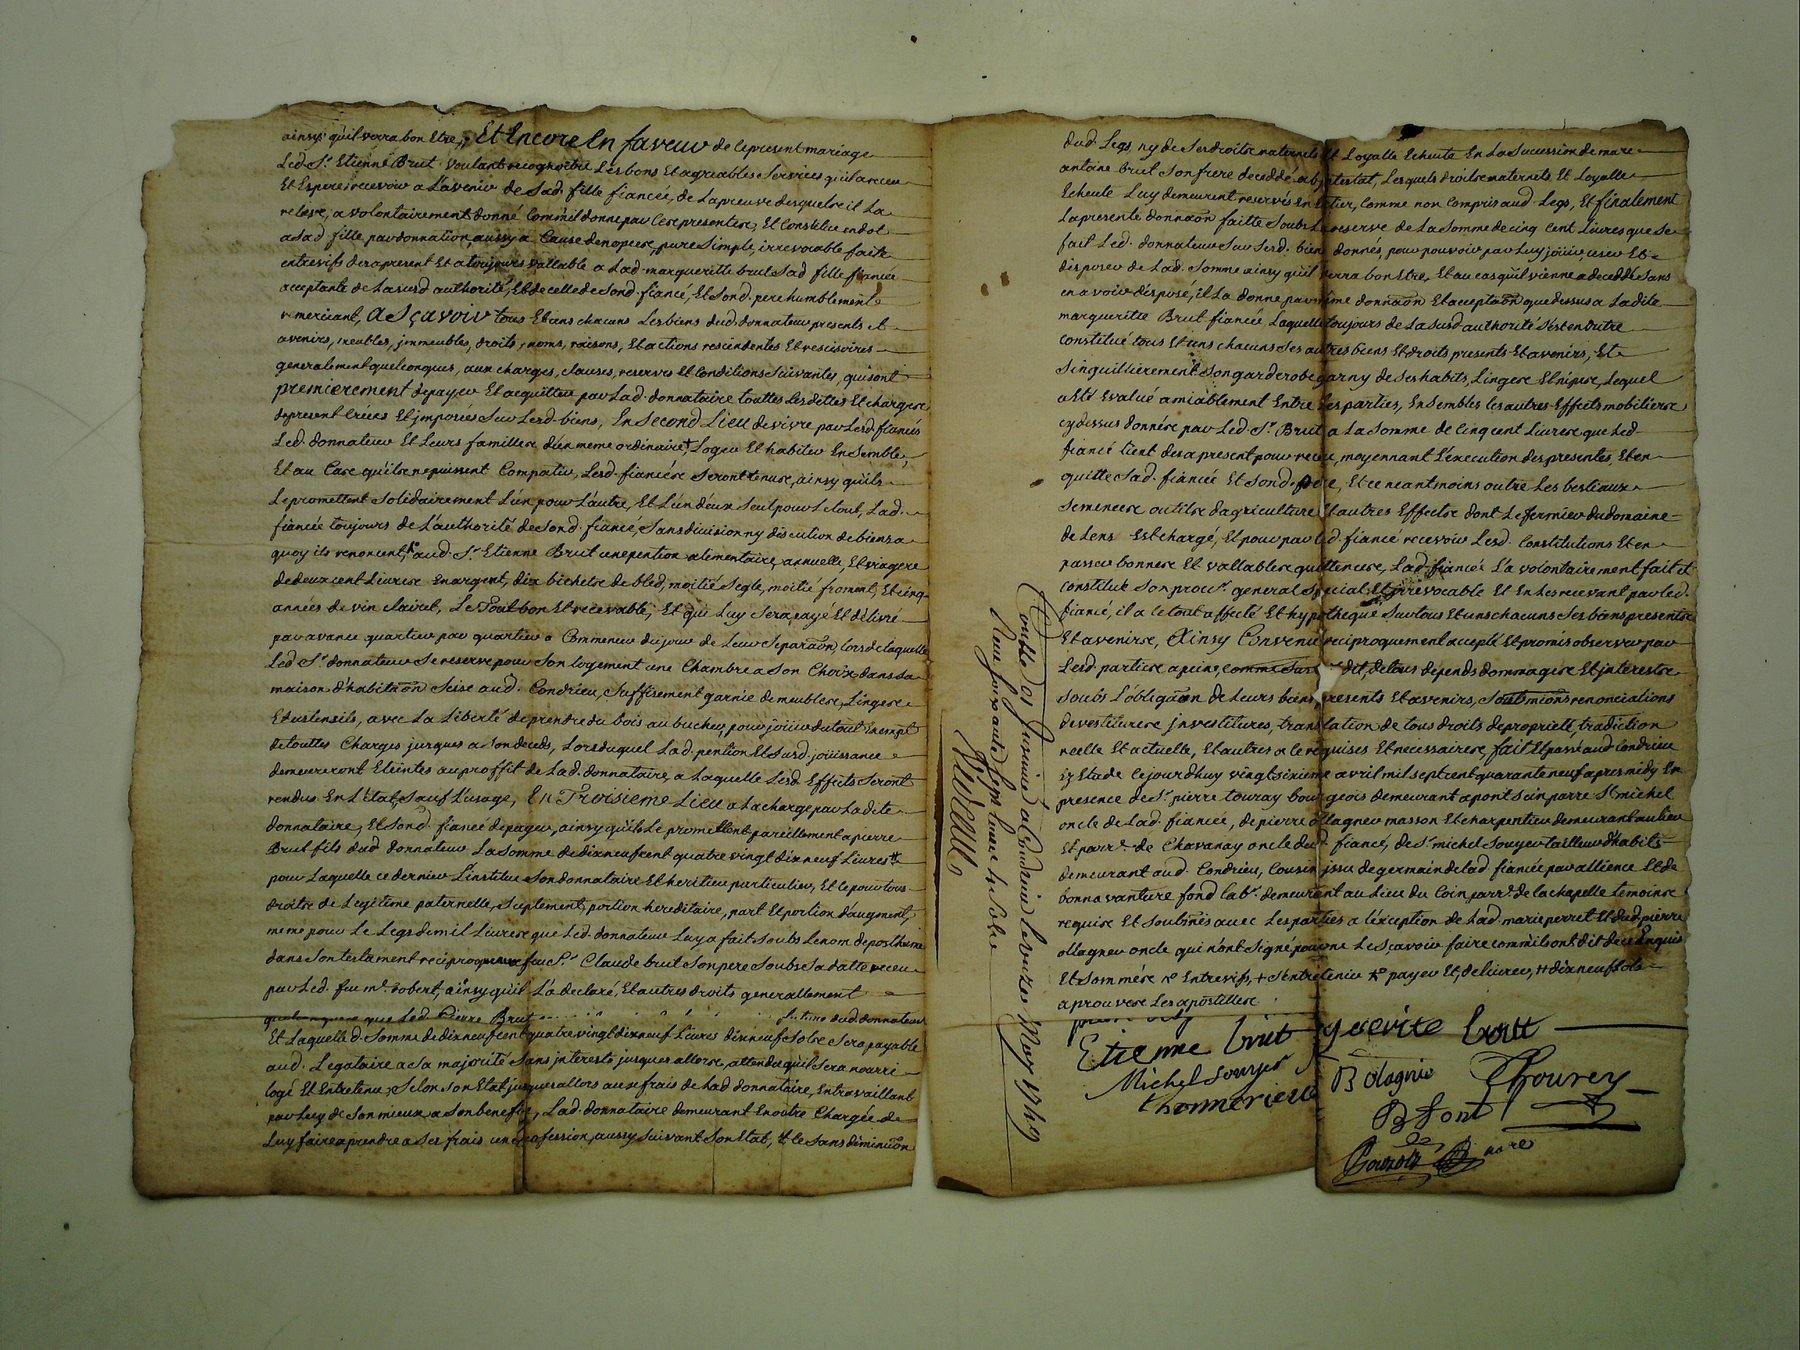 ainsy qu'il verra bon Etre, Et Encore En faveur de le present mariage
Led. Sr. Etienne Brut voulant recognoitre Les bons Et agreables Services qu'il a receu
Et Espere recevoir a L'avenir de Sad. fille fiancée, de La preuve desquels il La
releve, a volontairement donné comm'il donne par Ces presentes, Et Constitue en dot
a Sad fille par donnation, aussy a Cause de nopces, pure Simple, irrevocable faite
entrevifs des apresent Et a toujours vallable a Lad. margueritte brut Sad fille fiancée
acceptante de La susd authorité, Et de celle de Sond. fiancé, Et Sond. pere humblement
remerciant, a Sçavoir tous Et uns chacuns Les biens dud. donnateur presents et
avenirs, meubles, jmmeubles, droits, noms, raisons, Et actions rescindentes Et rescisoires
generalement quelconques, aux charges, clauses, reserves Et Conditions Suivantes, qui sont
premierement de payer Et acquitter par Lad. donnataire touttes Les dettes Et charges
de present Créées Et jmposées Sur Lesd. biens, En Second Lieu de vivre par Lesd. fiancés
Led. donnateur Et Leurs familles d'un meme ordinaire + Loger Et habiter Ensemble,
Et au Cas qu'ils ne puissent Compatir, Lesd. fiancés Seront tenus, ainsy qu'ils
Le promettent Solidairement L'un pour L'autre, Et L'un d'eux Seul pour Le tout, Lad.
fiancée toujours de L'authorité de Sond. fiancé, Sans division ny discution de biens a
quoy ils renoncent, aud. Sr. Etienne Brut une pention alimentaire, annuelle, Et viagere
de deux cent Livres en argent, dix bichets de bled, moitié Segle, moitié froment, Et cinq
années de vin clairet, Le Tout bon Et recevable, Et qui Luy Sera payé Et délivré
par avance quartier par quartier a Commencer du jour de Leur Separaõn, Lors de laquelle
Led Sr. donnateur Se reserve pour Son Logement une Chambre a Son Choix dans Sa
maison d'habitaõn Seise aud. Condrieu, Suffisement garnie de meubles, Linges
Et ustensils, avec La Liberté de prendre du bois au bucher, pour jouir du tout Exempt
de touttes Charges jusques a Son deceds, Lors duquel Lad. pention Et Susd. joüissance
demeureront Eteintes au proffit de Lad. donnataire, a Laquelle Lesd. Effects Seront
rendus En L'état, Sauf L'usage, En Troisieme Lieu a La charge par Ladite
donnataire, Et Sond. fiancé de payer, ainsy qu'ils Le promettent pareillement a pierre
Brut fils dud donnateur La Somme de dix neuf cent quatre vingt dix neuf Livres #
pour Laquelle ce dernier L'institue Son donnataire Et heritier particulier, Et Ce pour tous
droits de Legitime paternelle, Suplement, portion hereditaire, part Et portion d'augment,
meme pour Le Legs de mil Livres que Led. donnateur Luy a fait Soubs Le nom de posthume
dans Son testament reciproque feu Sr. Claude brut Son pere Soubs Sa datte receu
par Led. feu me. robert, ainsy qu'il L'a declaré, Et autres droits generallement
que Led. Pierre Brut dud. donnateur
Et Laquelle d. Somme de dix neuf cent quatre vingt dix neuf Livres dix neuf Sols Sera payable
aud. Legataire a Sa majorité Sans jnterests jusques allors, attendu qu'il Sera nourri
logé Et Entretenu, Selon Son Etat jusques allors aux frais de Lad donnataire, En travaillant
par Luy de Son mieux a Son benefice, Lad. donnataire demeurant En outre Chargée de
Luy faire aprendre a Ses frais une profession, aussy Suivant Son Etat, Et Ce Sans diminuõn
Controllé Et Jnsinué a Condrieu Le onze May 1749
dud. Legs, ny de Ses droits maternels Et Loyalle Echeute En La Sucession de marc
antoine brut Son frere deceddé abintestat, Lesquels droits maternels Et Loyalle
Echeute Luy demeurent reservés En Entier, Comme non Compris aud. Legs, Et finalement
La presente donnaõn faitte Soubs La reserve de La Somme de cinq Cent Livres que Se
fait Led. donnateur Sur Sesd. biens donnés, pour pouvoir par Luy jouir, user Et
disposer de Lad. Somme ainsy qu'il verra bon Etre, Et au cas qu'il vienne a decedder Sans
en avoir disposé, il La donne par meme donnaõn Et acceptaõn que dessus a Ladite
margueritte Brut fiancée Laquelle toujours de La Susd authorité S'est En outre
constitué tous Et uns chacuns Ses autres biens Et droits presents Et avenirs, Et
Singuillierement Son garderobe garny de Ses habits, Linges Et nipes, Lequel
a Eté Evalué amiablement Entre Les parties, Ensembles Les autres Effects mobiliers
cy dessus donnés par Led. Sr. Brut a La Somme de Cinq cent Livres que Led.
fiancé tient des a present pour receu, moyennant L'execution des presentes, Et en
quitte Sad. fiancée Et Sond. pere, Et ce neantmoins outre Les bestiaux
Semences outils d'agriculture Et autres Effects dont Le fermier du domaine
de Lens Est chargé, Et pour par Led. fiancé recevoir Lesd. Constitutions Et en
passer bonnes Et vallables quittences, Lad. fiancée L'a volontairement fait Et
constitué Son procr. general Special Et jrrevocable Et En Les recevant par Led.
fiancé, il a le tout affecté Et hypothequé Sur tous Et uns chacuns Ses biens presents
Et avenirs, Ainsy Convenu reciproquement accepté Et promis observer par
Lesd. parties a peine, dit, de tous depends dommages Et jnterests
Soubs L'obligaõn de Leurs biens presents Et avenirs, Soubmions renonciations
devestitures jnvestitures, translation de tous droits de proprieté, tradiction
reelle Et actuelle, Et autres a ce requises Et necessaires, fait Et passé aud Condrieu
Ez Etude Ce jourdhuy vingt sixieme avril mil sept cent quarante neuf apres midy En
presence de Sr. pierre touray bourgeois demeurant a pont Sain parre St michel
oncle de Lad. fiancée, de pierre ollagner masson Et charpentier demeurant au lieu
Et parre. de Chavanay oncle dud. fiancé, de Sr michel Souyer tailleur d'habits
demeurant aud. Condrieu, Cousin jssu de germain de Lad fiancée par allience Et de
bonnavanture fond labr. demeurant au Lieu du Coin parre. de la chapelle temoins
requis Et Soubnés avec Les parties a l'exception de Lad. marie perret Et dud pierre
ollagner oncle qui n'ont Signé pour ne Le Sçavoir faire comm'ils ont dit de ce Enquis
Et Sommés Entrevifs, + S'entretenir payer Et, delivrer, # dix neuf Sols
aprouvés Les apostilles
Etienne brut
Michel Souyer
B Font